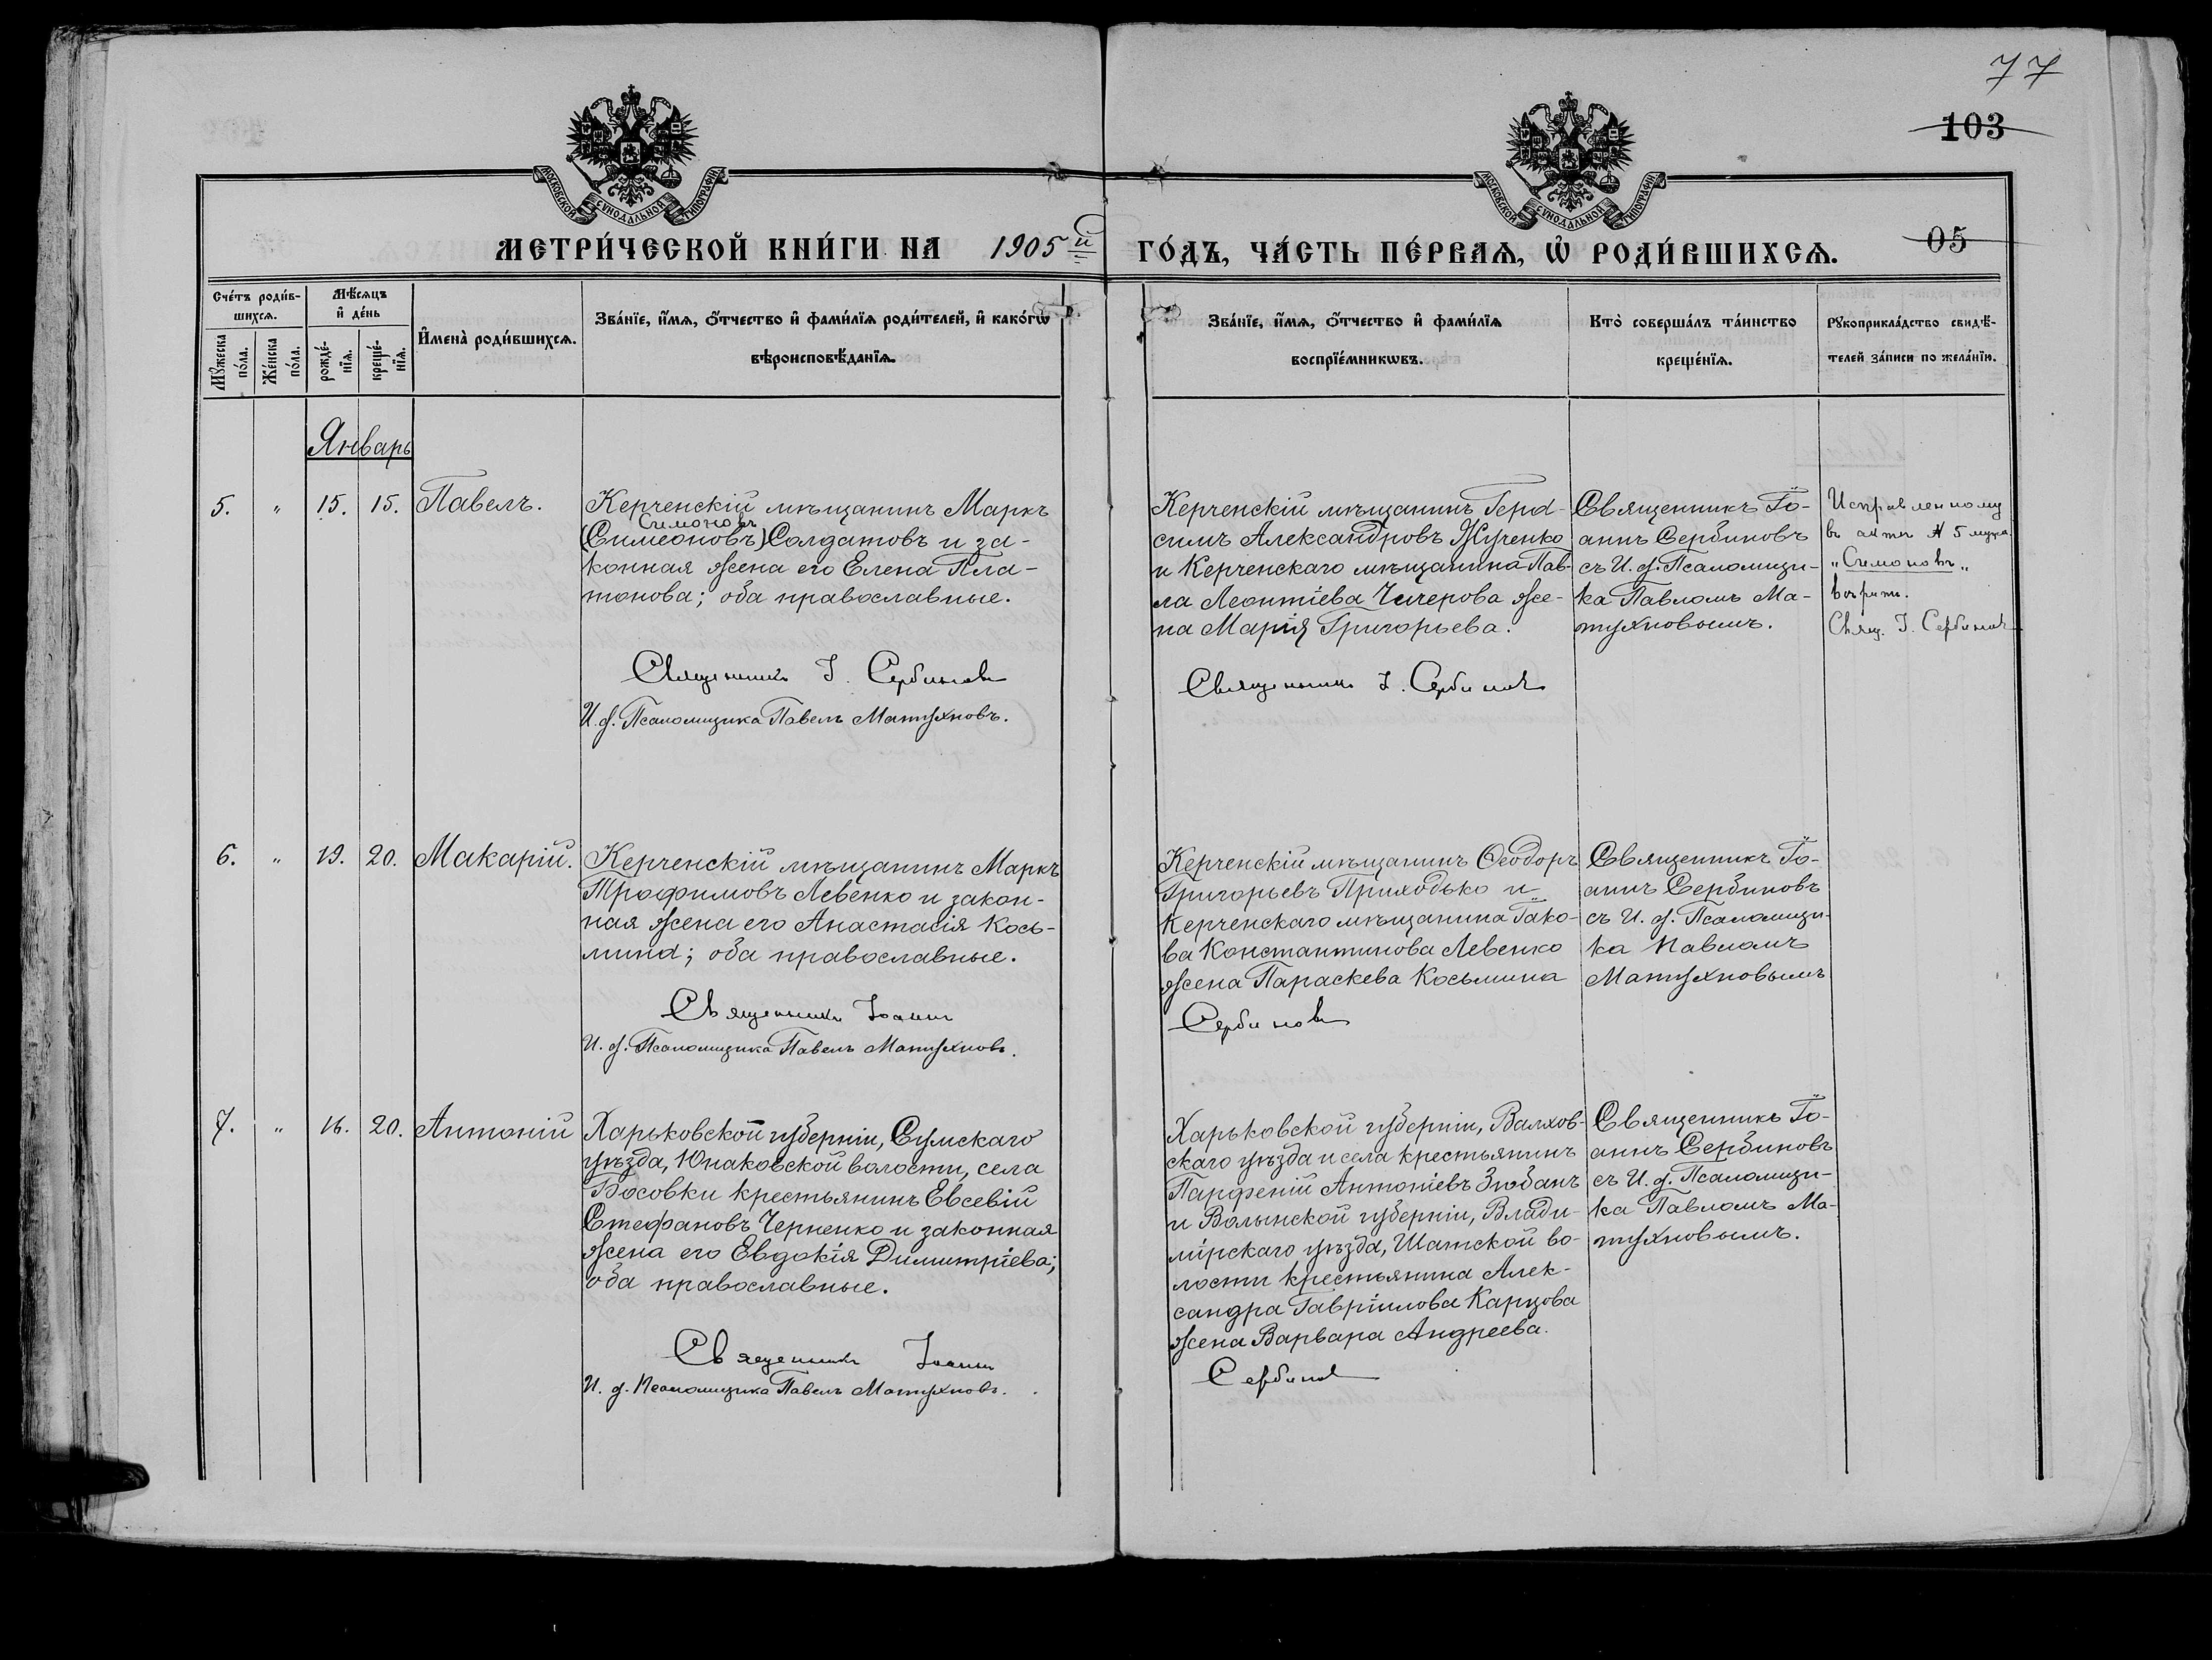 77
103
05
МОСКОВСКОЙ СѴНОДАЛЬНОЙ ТИПОГРАФІИ
МОСКОВСКОЙ СѴНОДАЛЬНОЙ ТИПОГРАФІИ
МЕТРИ́ЧЕСКОЙ КНИ́ГИ НА 1905й ГО́ДЪ, ЧА́СТЬ ПЕ́РВАѦ, Ѡ҆ РОДИ́ВШИХСѦ.
Сче́тъ роди́в-
шихсѧ.
Мꙋ́жеска по́ла.
Же́нска по́ла.
Мѣ́сѧцъ
и҆ де́нь
рожде́-
нїѧ.
креще́-
нїѧ.
И҆мена̀ роди́вшихсѧ.
Зва́нїе, и҆́мѧ, ѻ҆́тчество и҆ фами́лїѧ роди́телей, и҆ како́гѡ
вѣроисповѣ́данїѧ.
Зва́нїе, и҆́мѧ, ѻ҆́тчество и҆ фами́лїѧ
воспрїе́мникѡвъ.
Кто̀ соверша́лъ та́инство
креще́нїѧ.
Рꙋкоприкла́дство свидѣ́-
телей за́писи по жела́нїю.
Январь
5. " 15. 15. Павелъ.
Керченскій мѣщанинъ Маркъ
Симоновъ
(Симеоновъ) Солдатовъ и за-
конная жена его Елена Пла-
тонова; оба православные.
Священникъ І. Сербиновъ
И. д. Псаломщика Павелъ Матухновъ.
Керченскій мѣщанинъ Гера-
симъ Александровъ Жученко
и Керченскаго мѣщанина Пав-
ла Леонтіева Чичерова же-
на Марія Григорьева.
Священникъ І. Сербиновъ
Священникъ Іо-
аннъ Сербиновъ
съ И. д. Псаломщи-
ка Павломъ Ма-
тухновымъ.
Исправленному
въ актѣ № 5 муж.
"Симоновъ"
вѣрить.
Свящ. І. Сербиновъ
6. " 19. 20. Макарій.
Керченскій мѣщанинъ Маркъ
Трофимовъ Левенко и закон-
ная жена его Анастасія Козь-
мина; оба православные.
Священникъ Іоаннъ
И. д. Псаломщика Павелъ Матухновъ.
Керченскій мѣщанинъ Ѳеодоръ
Григорьевъ Приходько и
Керченскаго мѣщанина Іако-
ва Константинова Левенко
жена Параскева Косьмина
Сербиновъ
Священникъ Іо-
аннъ Сербиновъ
съ И. д. Псаломщи-
ка Павломъ
Матухновымъ
7. " 16. 20. Антоній
Харьковской губерніи, Сумскаго
уѣзда, Юнаковской волости, села
Босовки крестьянинъ Евсевій
Стефановъ Черненко и законная
жена его Евдокія Димитріева;
оба православные.
Священникъ Іоаннъ
И. д. Псаломщика Павелъ Матухновъ.
Харьковской губерніи, Валков-
скаго уѣзда и села крестьянинъ
Парфеній Антоніевъ Зюбанъ
и Волынской губерніи, Влади-
мірскаго уѣзда, Шатской во-
лости крестьянина Алек-
сандра Гавріилова Карцова
жена Варвара Андреева.
Сербиновъ
Священникъ Іо-
аннъ Сербиновъ
съ И. д. Псаломщи-
ка Павломъ Ма-
тухновымъ.